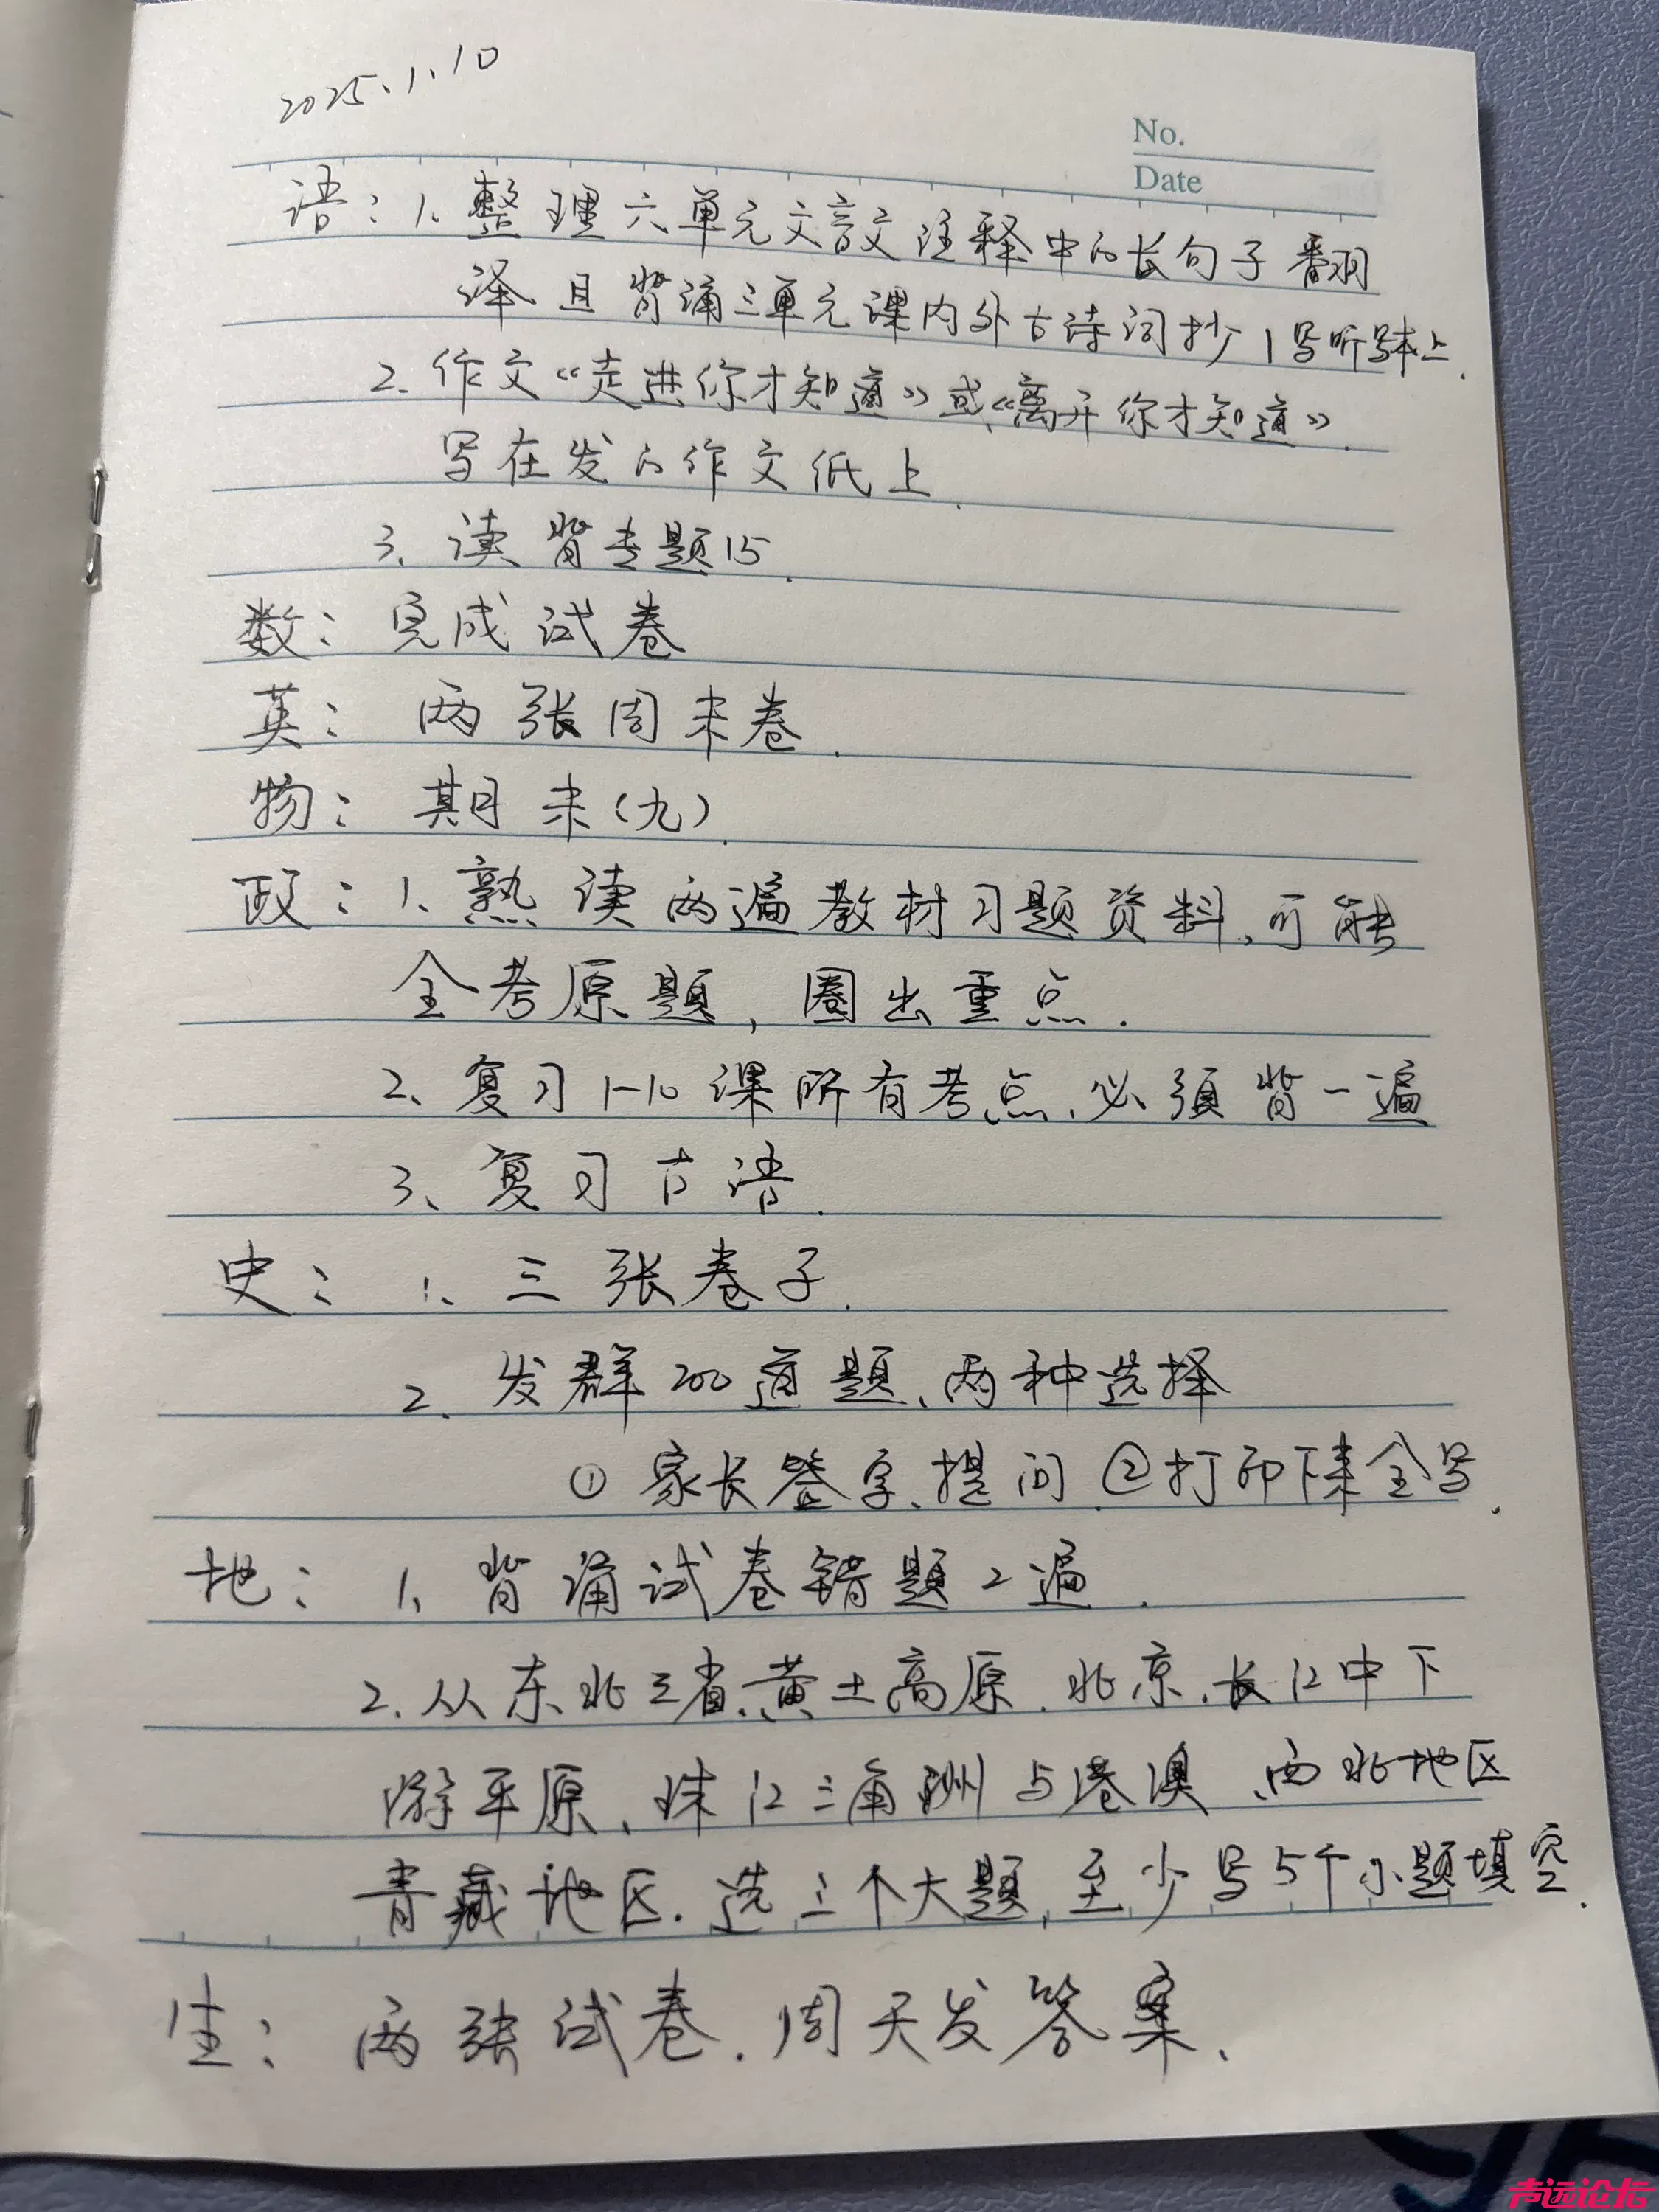 2025.1.10
No.
Date
语：1、整理六单元文言文注释中的长句子翻
译且背诵三单元课内外古诗词抄1写听写本上.
2. 作文《走进你才知道》或《离开你才知道》.
写在发的作文纸上.
3、读背专题15.
数：完成试卷
英：两张周末卷.
物：期末(九).
政：1、熟读两遍教材习题资料,可能
全考原题，圈出重点.
2、复习1-10课所有考点、必须背一遍
3、复习古语.
史：1、三张卷子.
2. 发群200道题、两种选择
①家长签字、提问.②打印下来全写.
地：1、背诵试卷错题2遍.
2. 从东北三省、黄土高原、北京、长江中下
游平原、珠江三角洲与港澳、西北地区
青藏地区. 选三个大题,至少写5个小题填空.
生：两张试卷. 周天发答案.
声远论坛